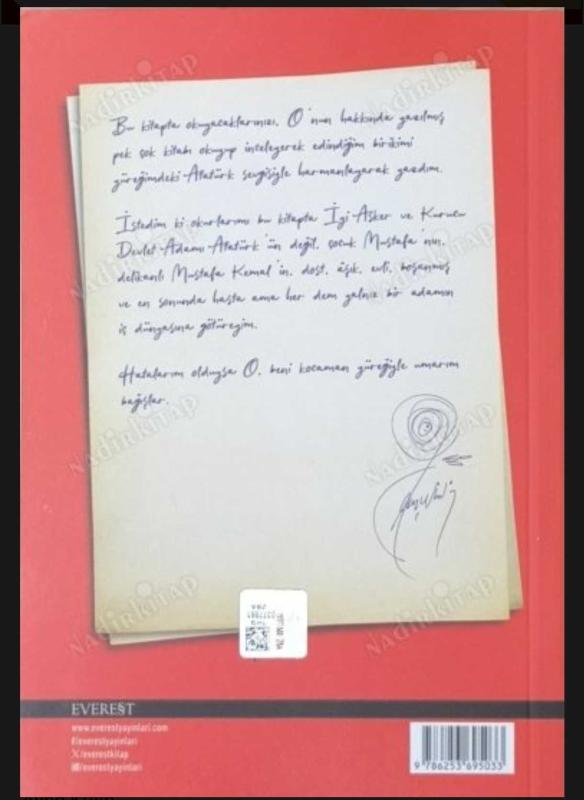 Bu kitapta okuyacaklarınızı, O'nun hakkında yazılmış
pek çok kitabı okuyup inceleyerek edindiğim birikimi
yüreğimdeki Atatürk sevgisiyle harmanlayarak yazdım.
İstedim ki okurlarımı bu kitapta İyi Asker ve Kurucu
Devlet Adamı Atatürk'ün değil, çocuk Mustafa'nın,
delikanlı Mustafa Kemal'in, dost, âşık, evli, boşanmış
ve en sonunda hasta ama her dem yalnız bir adamın
iç dünyasına götüreyim.
Hatalarım olduysa O, beni kocaman yüreğiyle umarım
bağışlar.
EVEREST
www.everestyayinlari.com
f/everestyayinlari
X/everestkitap
/everestyayinlari
9 786253 695033
NADİRKİTAP